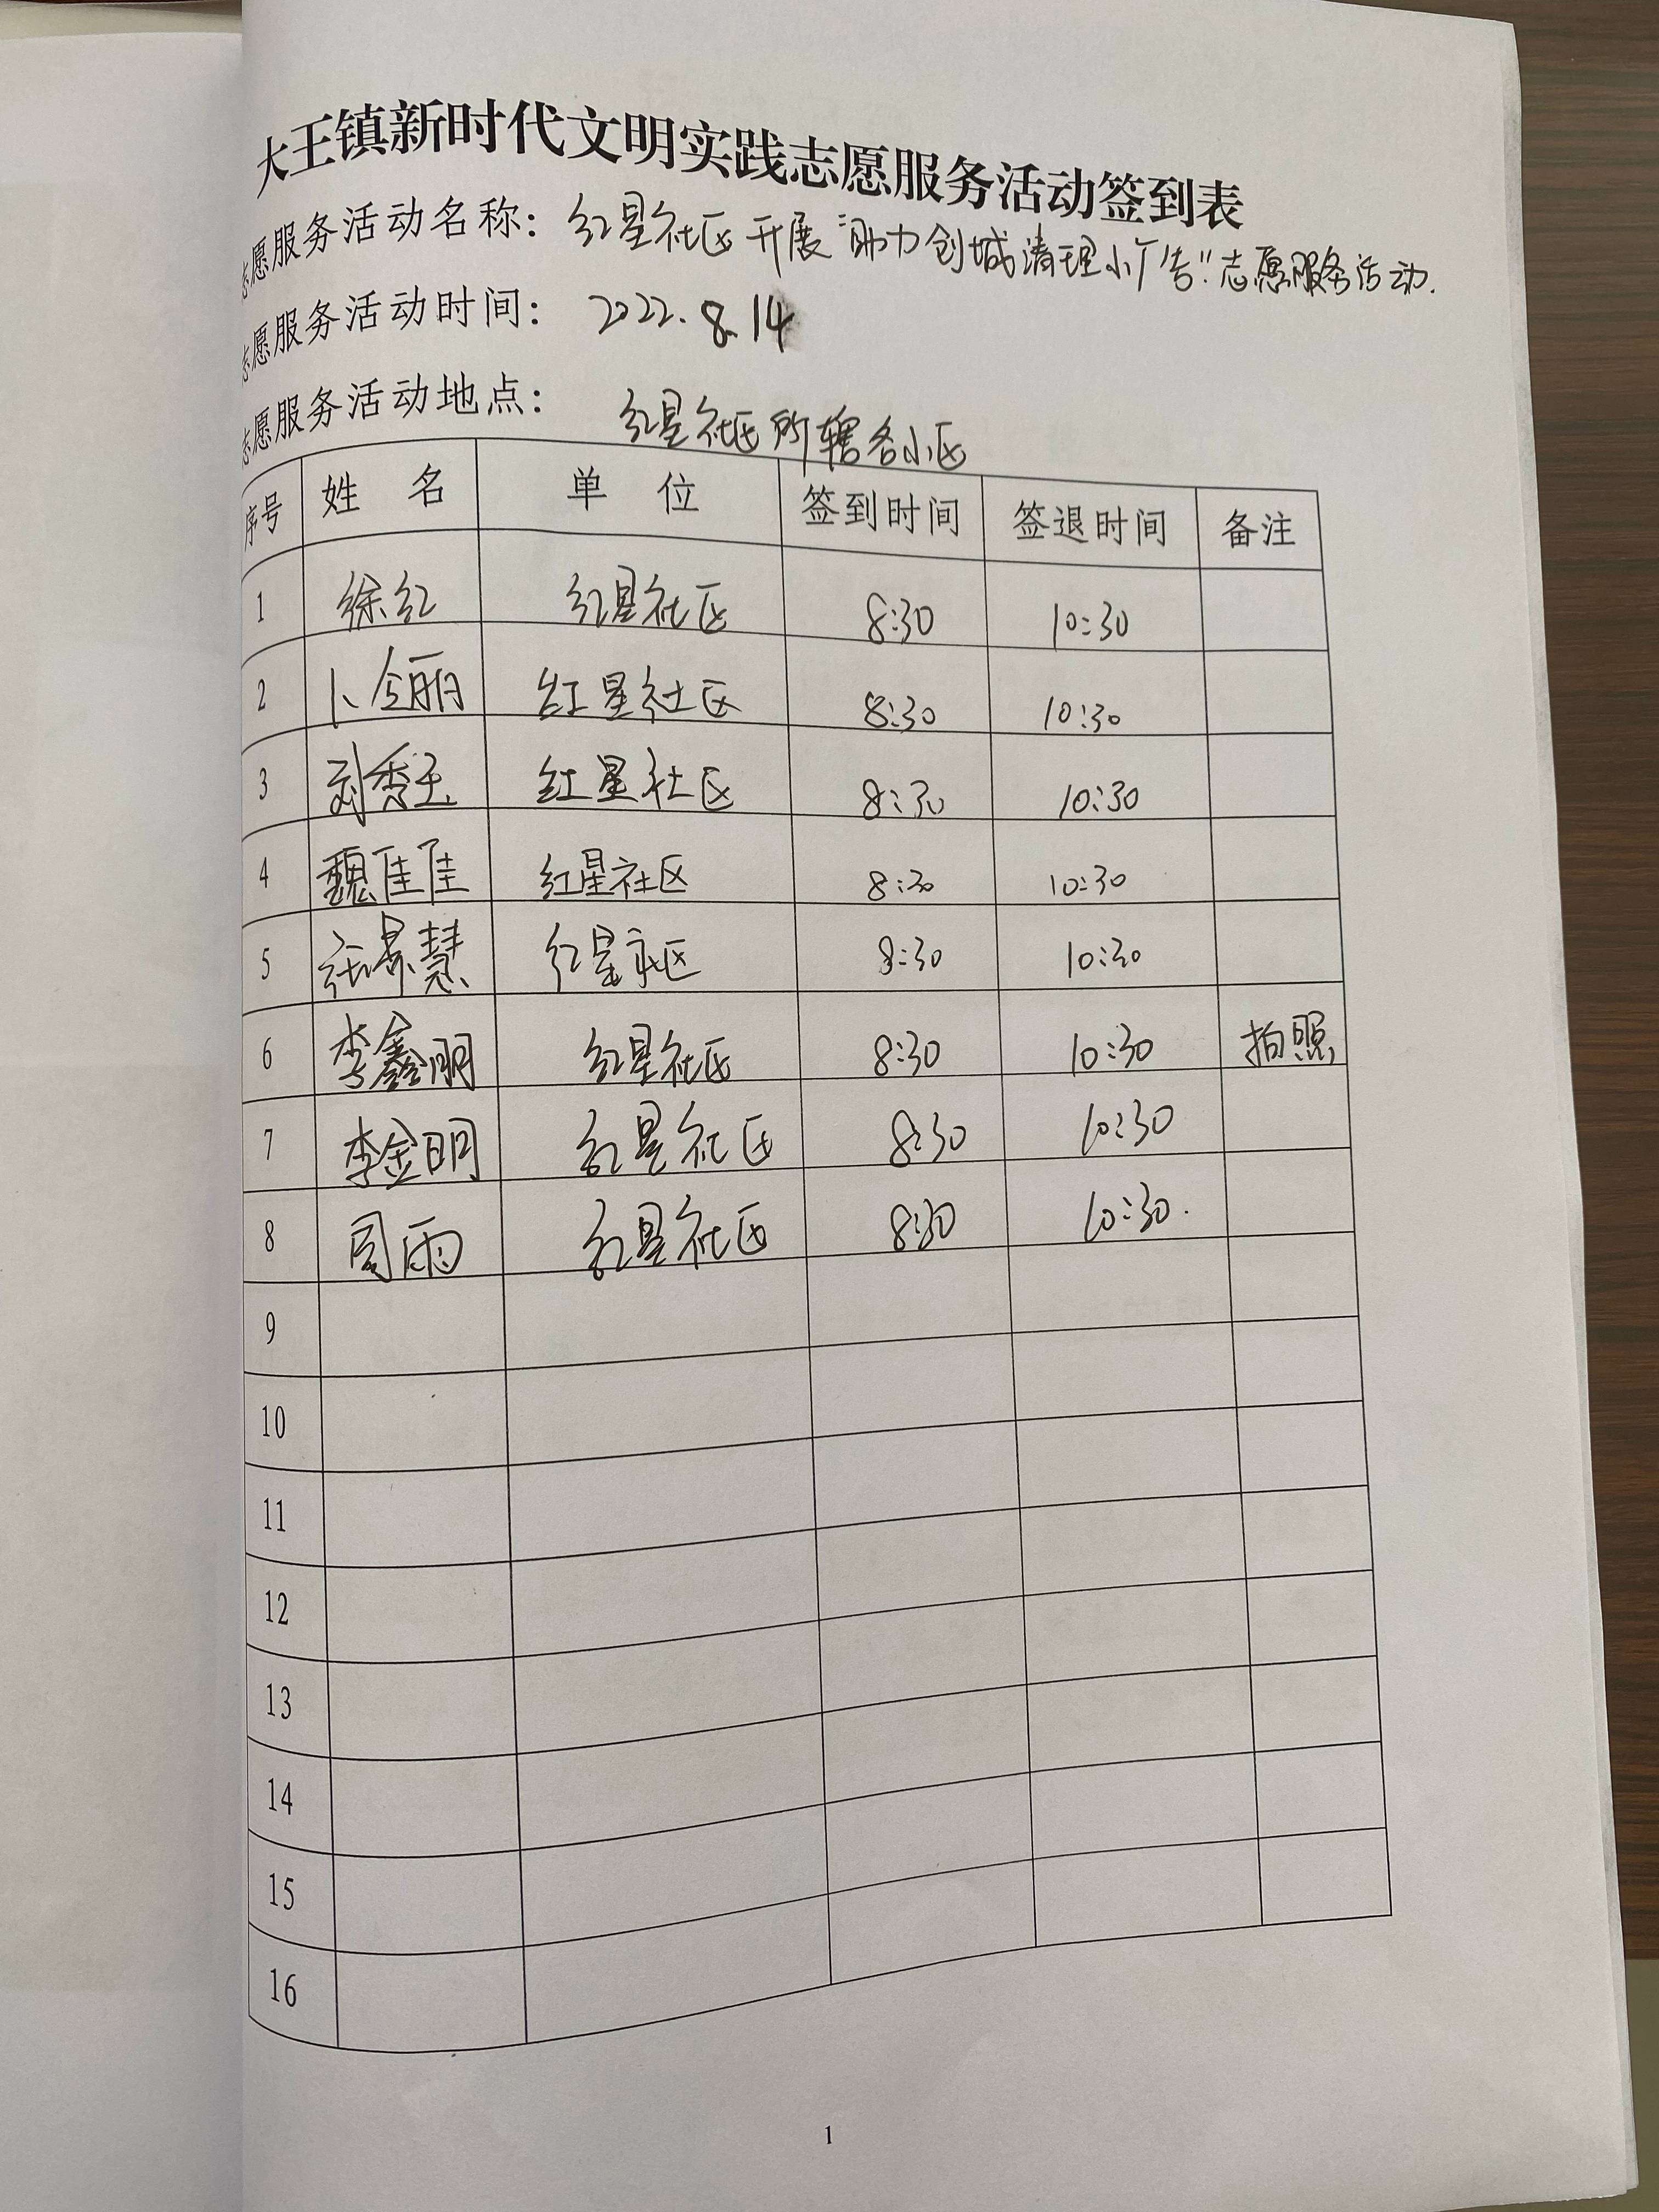 大王镇新时代文明实践志愿服务活动签到表
志愿服务活动名称：红星社区开展“助力创城清理小广告”志愿服务活动.
志愿服务活动时间：2022.8.14
志愿服务活动地点：红星社区所辖各小区
序号 姓 名 单 位 签到时间 签退时间 备注
1 徐红 红星社区 8:30 10:30
2 卜令丽 红星社区 8:30 10:30
3 刘秀玉 红星社区 8:30 10:30
4 魏佳佳 红星社区 8:30 10:30
5 慧 红星社区 8:30 10:30
6 李鑫明 红星社区 8:30 10:30 拍照
7 李金明 红星社区 8:30 10:30
8 周雨 红星社区 8:30 10:30.
9
10
11
12
13
14
15
16
1